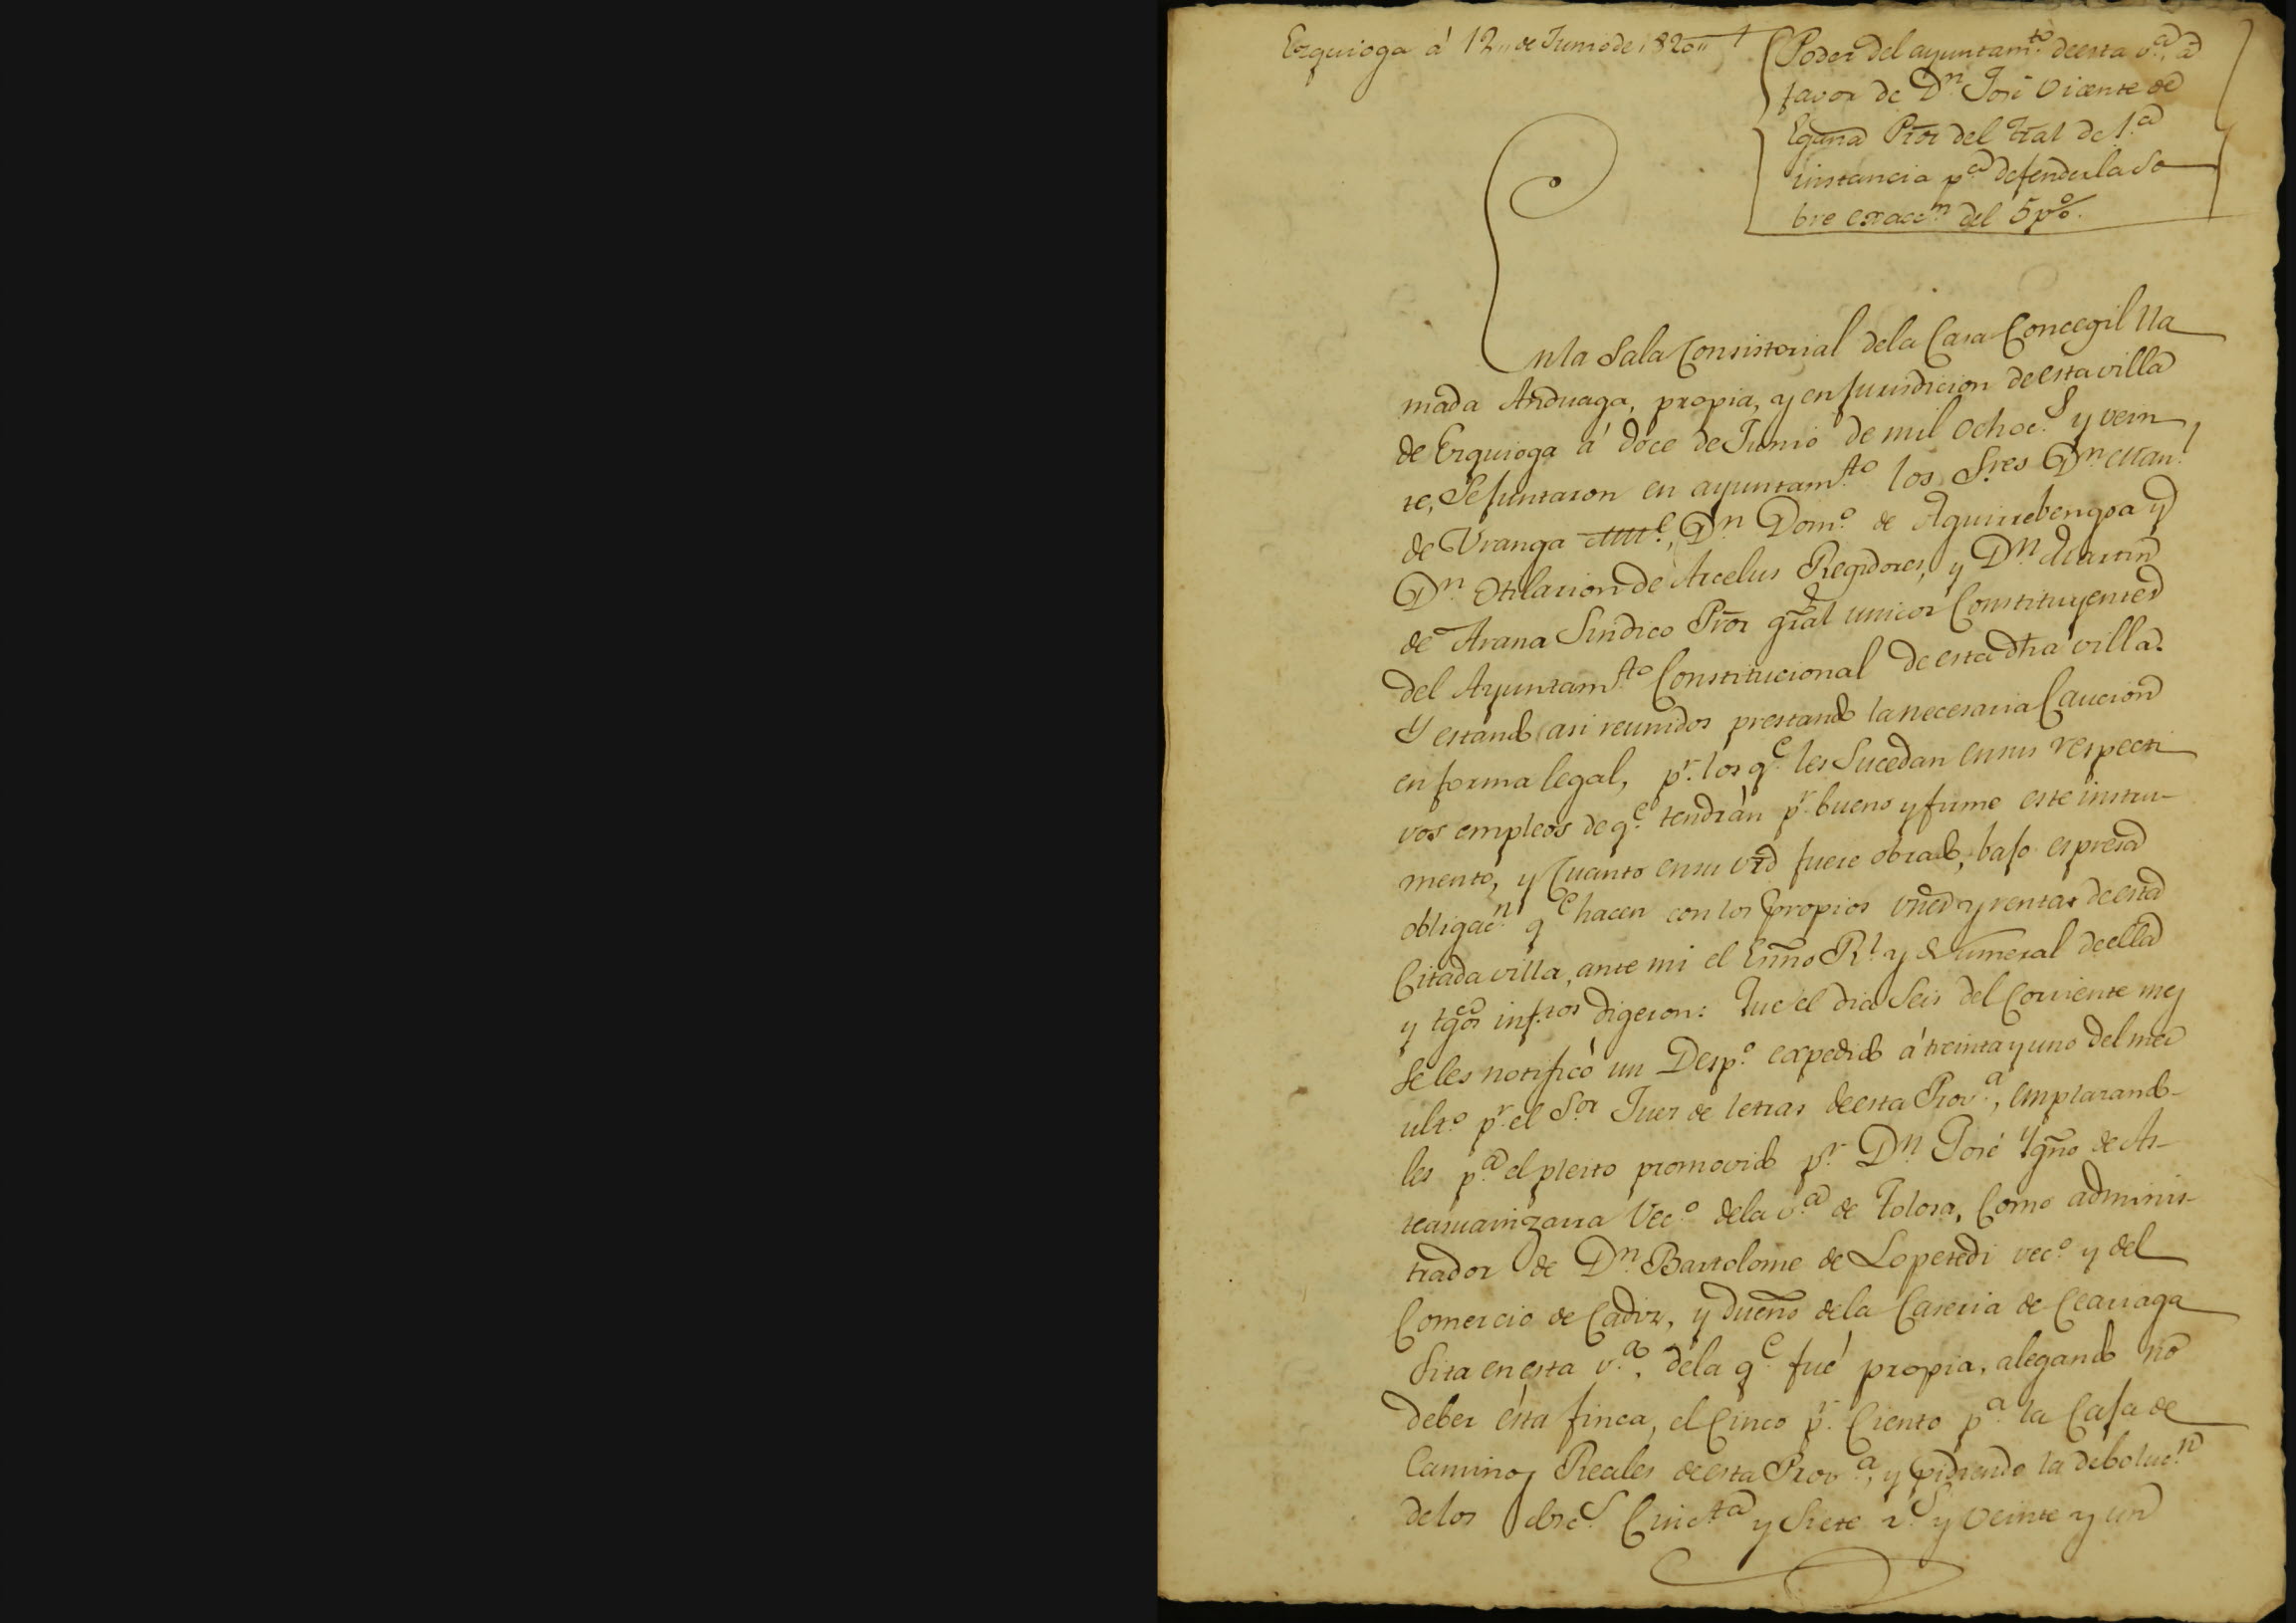 Ezquioga á 12,, de Junio de 1820,,
Poder del ayuntam.to de esta v.a, á
favor de D.n José Vicente de
Egaña Pror del Tral de 1.a
instancia p.a defenderla so
bre exacc.n del 5 p%.
En la Sala Consistorial de la Casa Concegil lla
mada Anduaga, propia, y en Jurisdicion de esta villa
de Ezquioga á doce de Junio de mil ochoc.s y vein
te, Se juntaron en ayuntam.to los S.res D.n Man.l
de Uranga Alc.e, D.n Dom.o de Aguirrebengoa y
D.n Hilarion de Arcelus Regidores, y D.n Martin
de Arana Sindico Pror gral unicos Constituyentes
del Ayuntam.to Constitucional de esta dha villa.
Y estando asi reunidos prestando la necesaria Caucion
en forma legal, p.r los q.e les Sucedan en sus respecti
vos empleos de q.e tendrán p.r bueno y firme este instru-
mento, y Cuanto en su vrd fuere obrado, bajo espresa
obligac.n q.e hacen con los propios vnes y rentas de esta
Citada villa, ante mi el Esnno R.l y Numeral de ella
y tgos infros digeron: Que el dia Seis del Corriente mes
Se les notificó un Desp.o expedido á treinta y uno del mes
ult.o p.r el S.or Juez de letras de esta Prov.a, emplazando-
les p.a el pleito promovido p.r D.n José Ygno de Ar-
teasuainzarra Vec.o de la v.a de Tolosa, Como adminis-
trador de D.n Bartolome de Lopetedi vec.o y del
Comercio de Cadiz, y dueño de la Caseria de Cearraga
Sita en esta v.a, de la q.e fué propia, alegando no
deber ésta finca, el Cinco p.r Ciento p.a la Caja de
Caminos Reales de esta Prov.a, y pidiendo la deboluc.n
de los Cinc.ta y Siete r.s y veinte y un